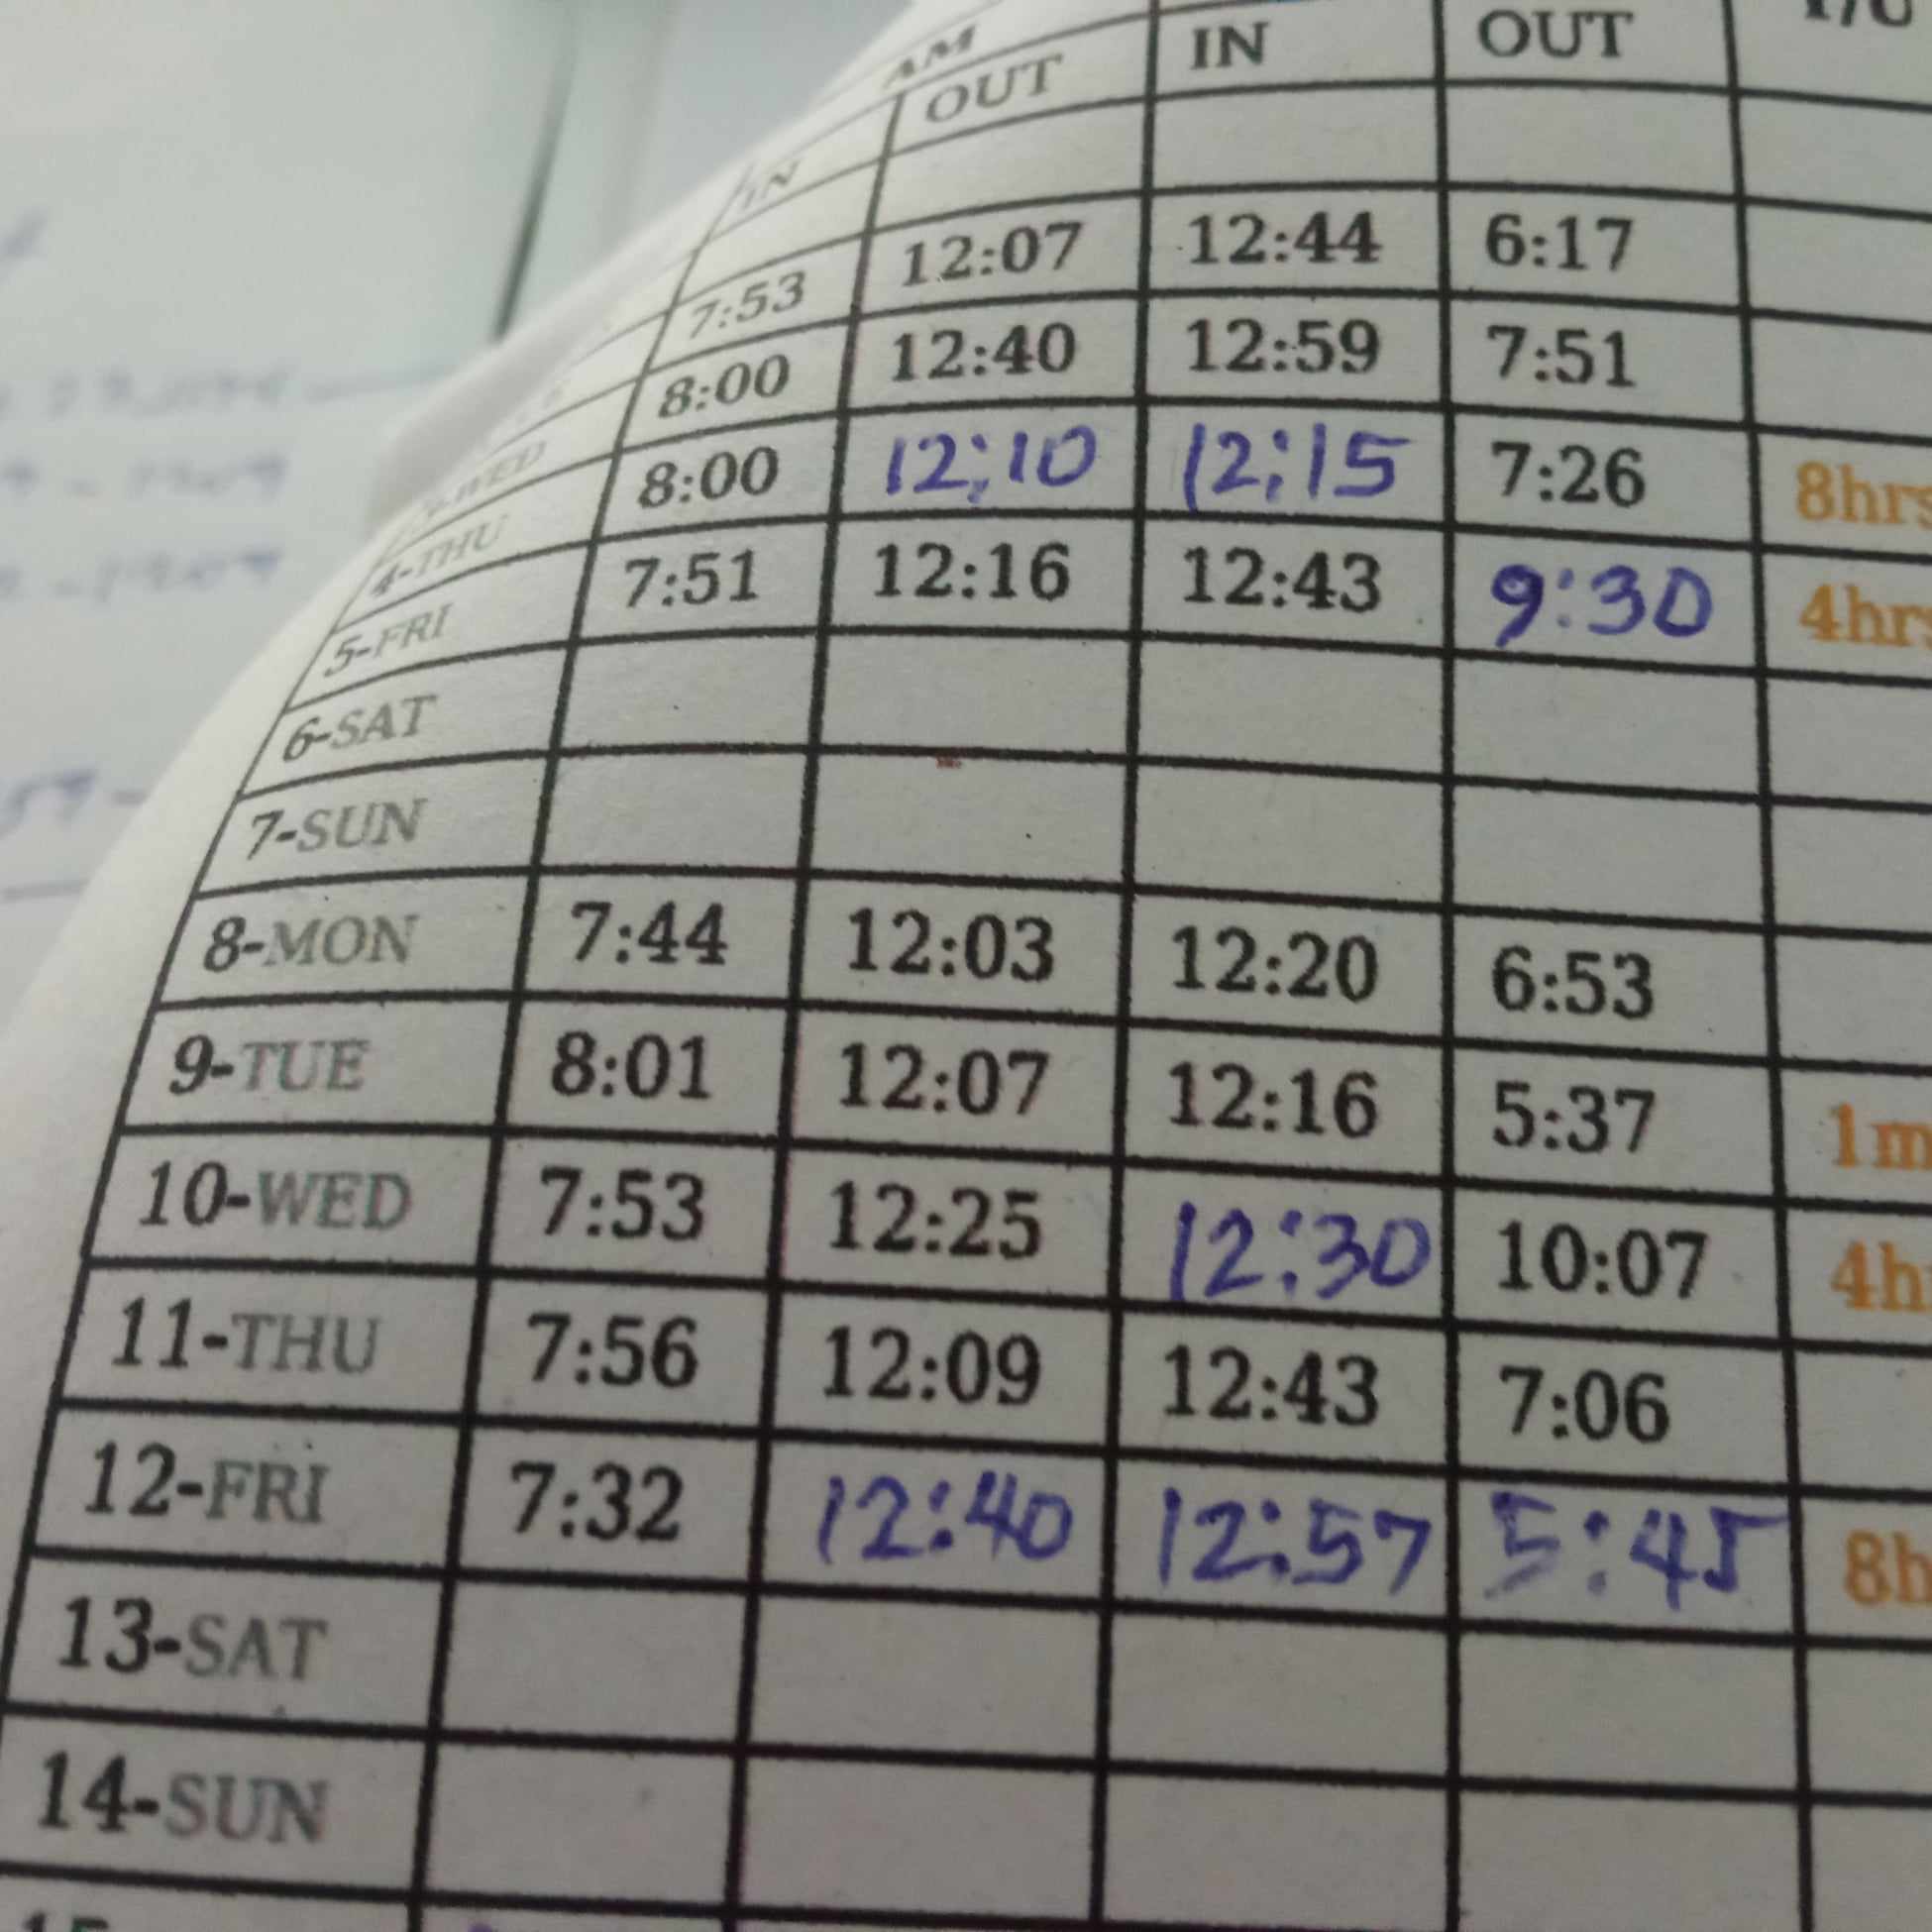 AM
IN OUT IN OUT
7:53 12:07 12:44 6:17
-WED 8:00 12:40 12:59 7:51
4-THU 8:00 12:10 12:15 7:26 8hrs
5-FRI 7:51 12:16 12:43 9:30 4hrs
6-SAT
7-SUN
8-MON 7:44 12:03 12:20 6:53
9-TUE 8:01 12:07 12:16 5:37 1m
10-WED 7:53 12:25 12:30 10:07 4h
11-THU 7:56 12:09 12:43 7:06
12-FRI 7:32 12:40 12:57 5:45 8h
13-SAT
14-SUN